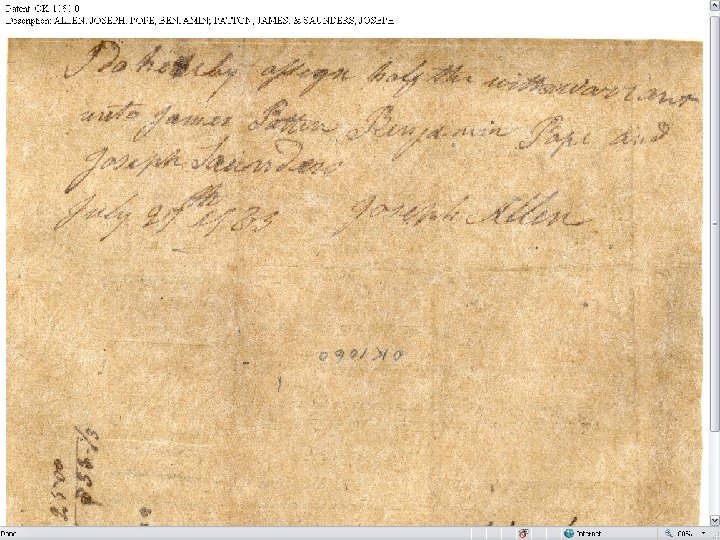 Patent: OK 1060.0
Description: ALLEN, JOSEPH; POPE, BENJAMIN; PATTON, JAMES; & SAUNDERS, JOSEPH
I do hereby assign half the within warrant
unto James Patten Benjamin Pope and
Joseph Saunders
July 29th 1783 Joseph Allen
OK1060
Done
Internet